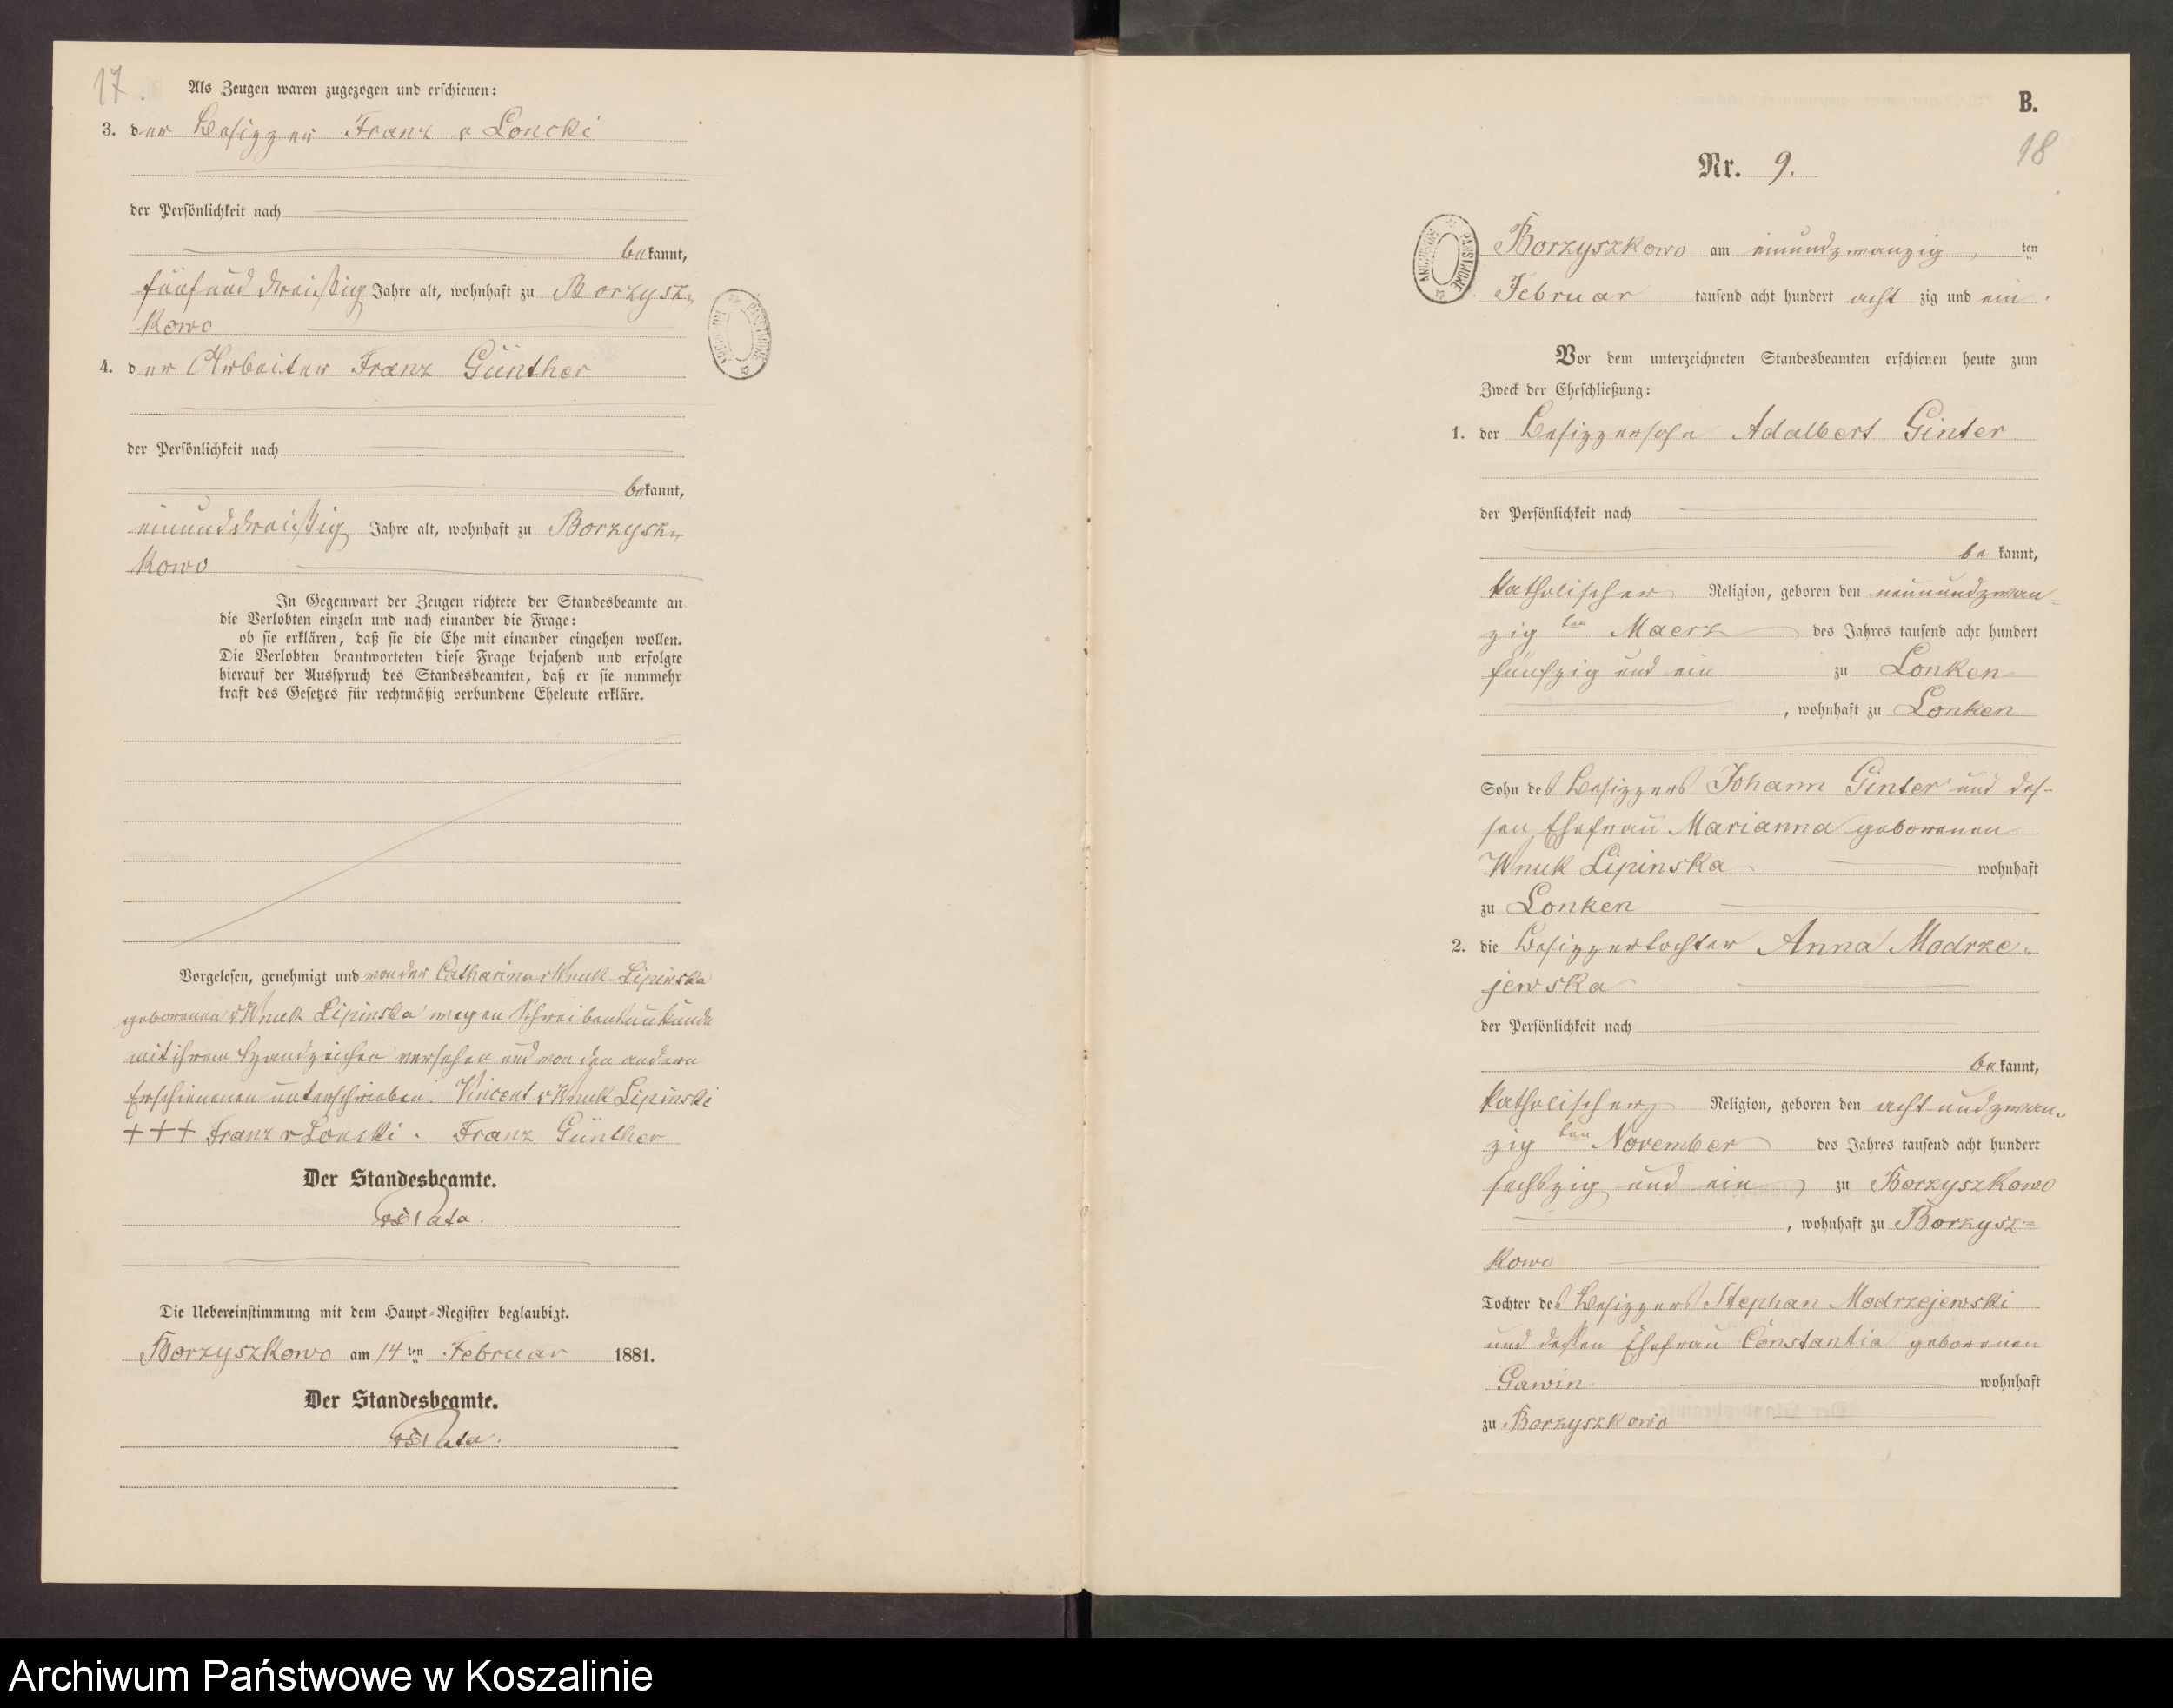 17.
Als Zeugen waren zugezogen und erschienen:
3. der Besitzer Franz v Loncki
der Persönlichkeit nach
bekannt,
fünfund dreißig Jahre alt, wohnhaft zu Borzysz„
kowo
4. der Arbeiter Franz Günther
der Persönlichkeit nach
bekannt,
einunddreißig Jahre alt, wohnhaft zu Borzysz„
kowo
In Gegenwart der Zeugen richtete der Standesbeamte an
die Verlobten einzeln und nach einander die Frage:
ob sie erklären, daß sie die Ehe mit einander eingehen wollen.
Die Verlobten beantworteten diese Frage bejahend und erfolgte
hierauf der Ausspruch des Standesbeamten, daß er sie nunmehr
kraft des Gesetzes für rechtmäßig verbundene Eheleute erkläre.
Vorgelesen, genehmigt und von der Catharina v Wnuk-Lipinska
geborenen v Wnuk Lipinska wegen Schreibensunkunde
mit ihrem Handzeichen versehen und von den andern
Erschienenen unterschrieben. Vincent v Wnuk Lipinski
+++ Franz v Loncki. Franz Günther
Der Standesbeamte.
Die Uebereinstimmung mit dem Haupt-Register beglaubigt.
Borzyszkowo am 14ten Februar 1881.
Der Standesbeamte.
ARCHIWUM PAŃSTWOWE
B.
18
Nr. 9.
ARCHIWUM PAŃSTWOWE
Borzyszkowo am einundzwanzig ten
Februar tausend acht hundert acht zig und ein.
Vor dem unterzeichneten Standesbeamten erschienen heute zum
Zweck der Eheschließung:
1. der Besitzersohn Adalbert Ginter
der Persönlichkeit nach
be kannt,
katholischer Religion, geboren den neunundzwan=
zig ten Maerz des Jahres tausend acht hundert
fünfzig und ein zu Lonken
, wohnhaft zu Lonken
Sohn des Besitzers Johann Ginter und des-
sen Ehefrau Marianna geborenen
Wnuk Lipinska wohnhaft
zu Lonken
2. die Besitzertochter Anna Modrze„
jewska
der Persönlichkeit nach
bekannt,
katholischer Religion, geboren den acht undzwan„
zig ten November des Jahres tausend acht hundert
sechszig und ein zu Borzyszkowo
, wohnhaft zu Borzysz=
kowo
Tochter des Besitzers Stephan Modrzejewski
und dessen Ehefrau Constantia geborenen
Gawin wohnhaft
zu Borzyszkowo
Archiwum Państwowe w Koszalinie